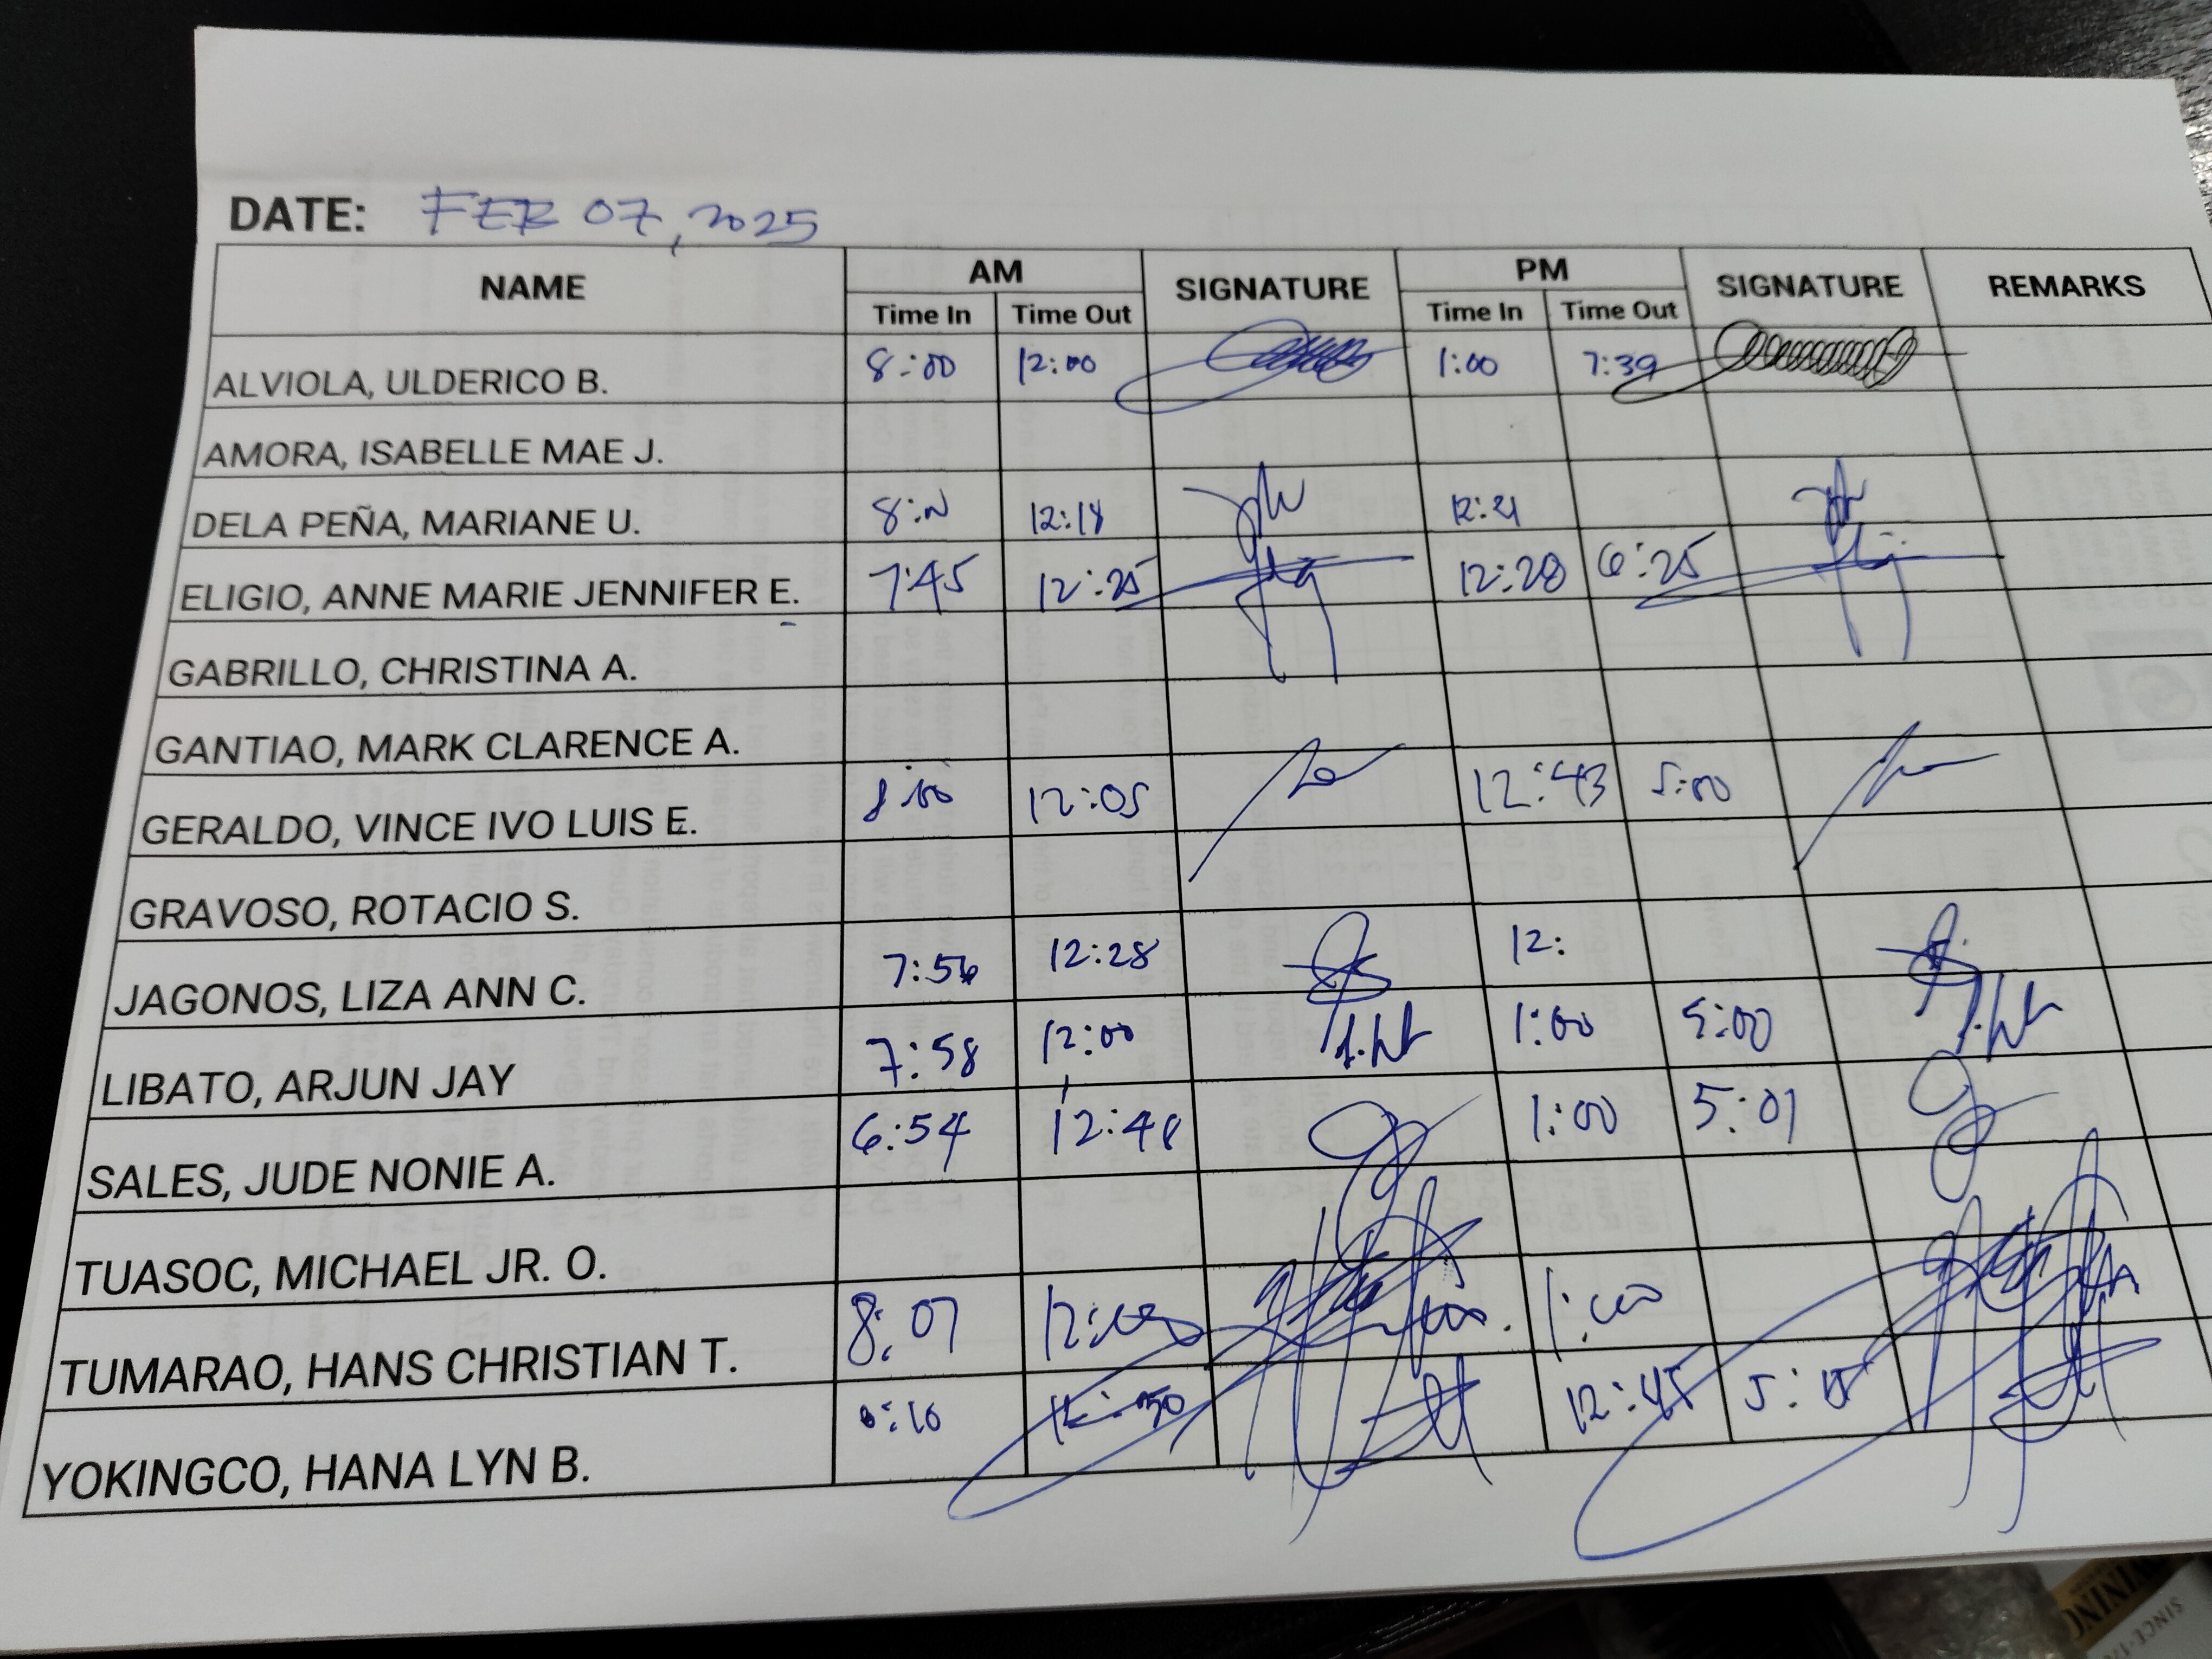 DATE: FEB 07, 2025
NAME AM SIGNATURE PM SIGNATURE REMARKS
Time In Time Out Time In Time Out
ALVIOLA, ULDERICO B. 8:00 12:00 1:00 7:39
AMORA, ISABELLE MAE J.
DELA PEÑA, MARIANE U. 12:18 12:21
ELIGIO, ANNE MARIE JENNIFER E. 7:45 12:25 12:28 6:25
GABRILLO, CHRISTINA A.
GANTIAO, MARK CLARENCE A.
GERALDO, VINCE IVO LUIS E. 8:00 12:05 12:43 5:00
GRAVOSO, ROTACIO S.
JAGONOS, LIZA ANN C. 7:56 12:28 12:
LIBATO, ARJUN JAY 7:58 12:00 1:00 5:00
SALES, JUDE NONIE A. 6:54 12:48 1:00 5:01
TUASOC, MICHAEL JR. O.
TUMARAO, HANS CHRISTIAN T. 8:07 12:00 1:00
YOKINGCO, HANA LYN B. 12:30 12:45
SINCE